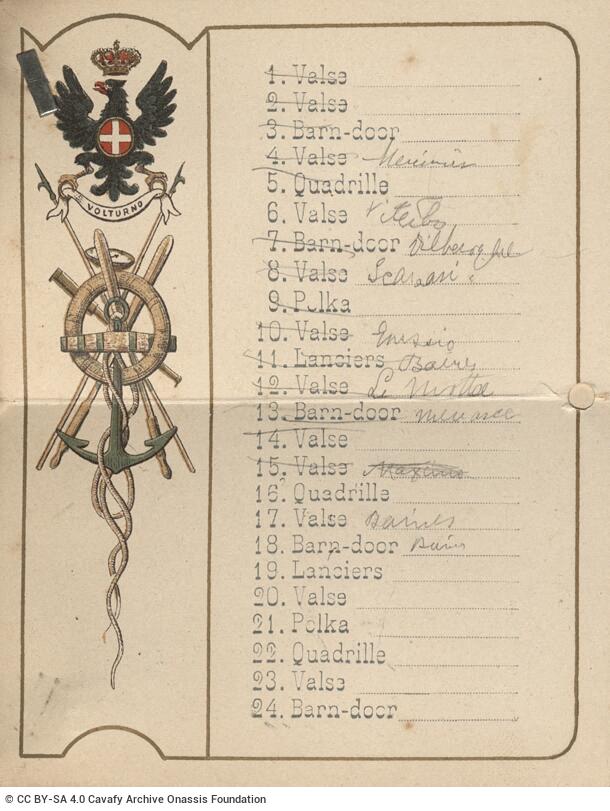 VOLTURNO
1. Valse
2. Valse
3. Barn-door
4. Valse
5. Quadrille
6. Valse Viterbo
7. Barn-door
8. Valse
9. Polka
10. Valse
11. Lanciers Baines
12. Valse La Motta
13. Barn-door Menasce
14. Valse
15. Valse
16. Quadrille
17. Valse Baines
18. Barn-door
19. Lanciers
20. Valse
21. Polka
22. Quadrille
23. Valse
24. Barn-door
© CC BY-SA 4.0 Cavafy Archive Onassis Foundation